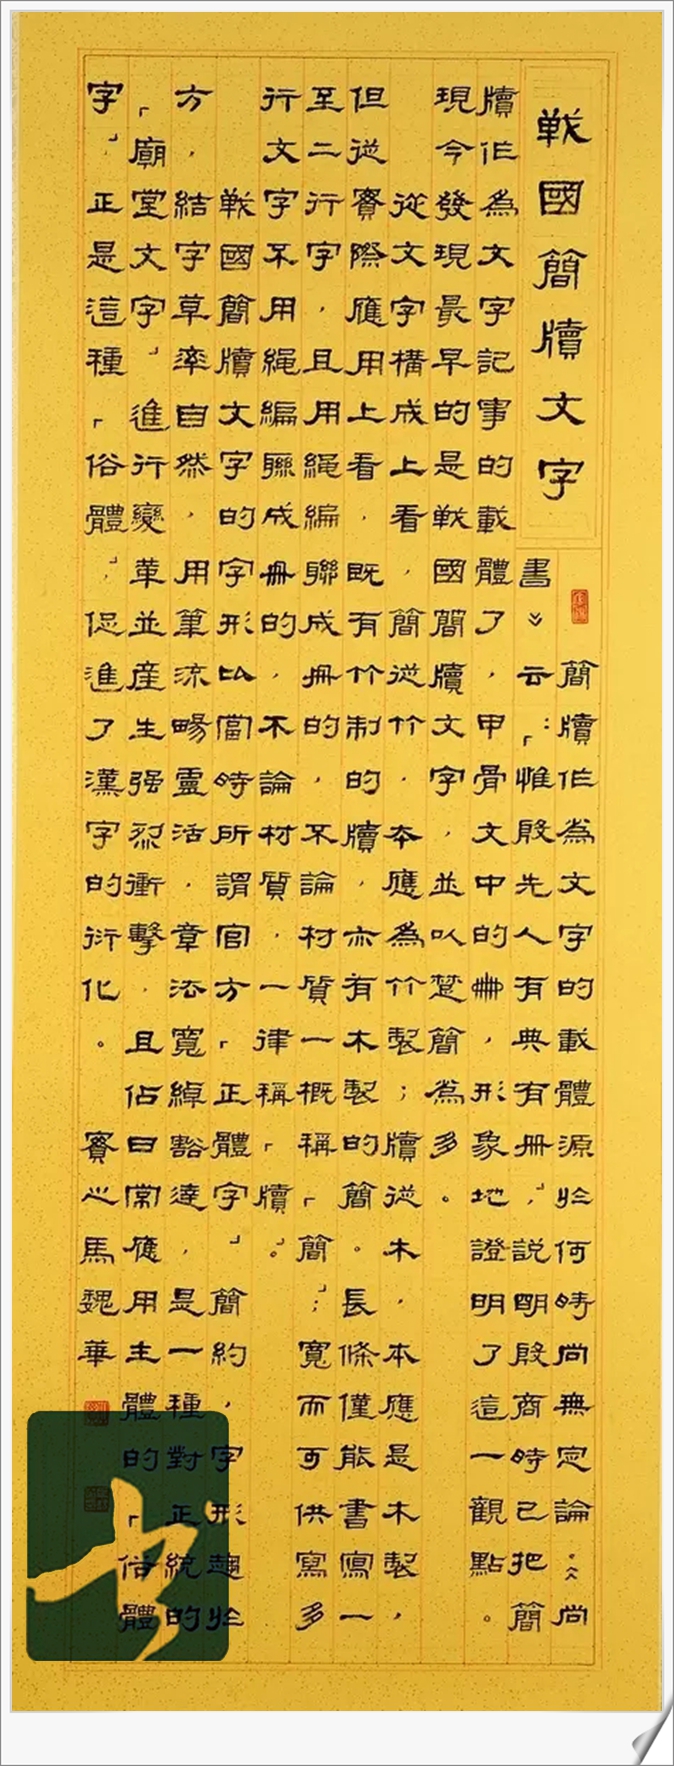 戦國簡牘文字
簡牘作為文字的載體源於何時尚無定論。《尚
書》云：「惟殷先人有典有冊」，說明殷商時已把簡
牘作為文字記事的載體了，甲骨文中的冊，形象地證明了這一觀點。
現今發現最早的是戦國簡牘文字，並以楚簡為多。
從文字構成上看，簡從竹，本應為竹製；牘從木，本應是木製，
但從實際應用上看，既有竹制的牘，亦有木製的簡。長條僅能書寫一
至二行字，且用繩編聯成冊的，不論材質一概稱「簡」；寬而可供寫多
行文字不用繩編聯成冊的，不論材質，一律稱「牘」。
戦國簡牘文字的字形比當時所謂官方「正體字」簡約，字形趨於
方，結字草率自然，用筆流暢靈活，章法寬綽豁達，是一種對正統的
「廟堂文字」進行變革並産生强烈衝擊，且佔日常應用主體的「俗體
字」，正是這種「俗體」，促進了漢字的衍化。實心馬魏華
书